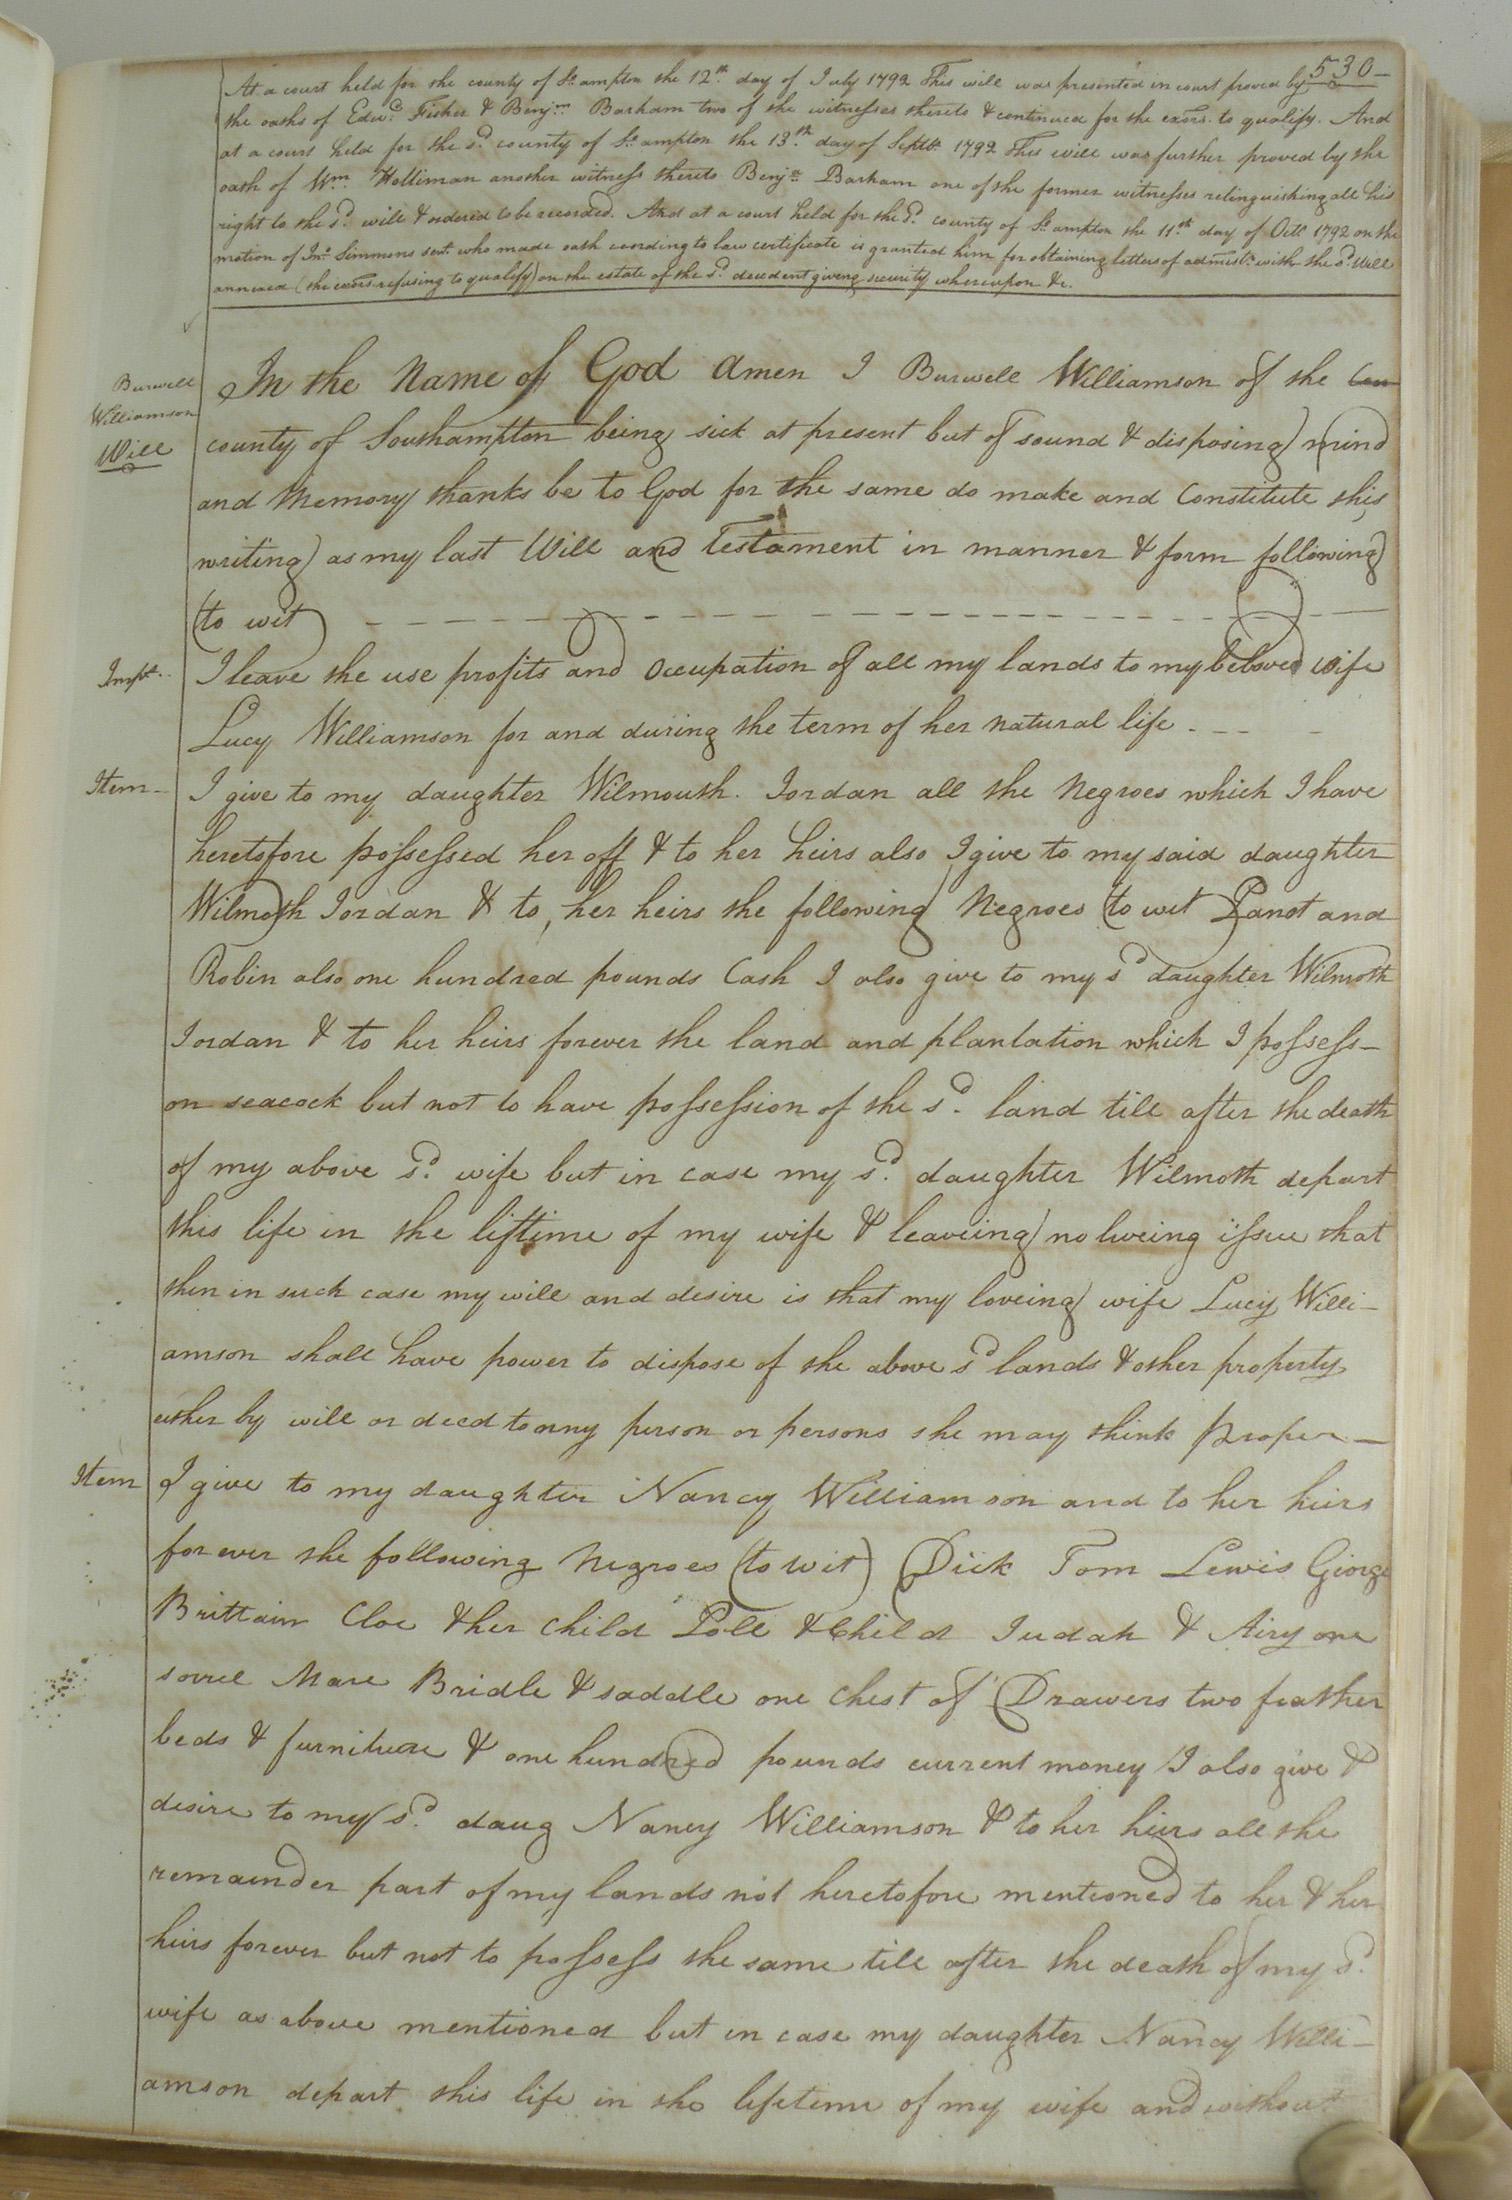 530
At a court held for the county of So.ampton the 12th day of July 1792 This will was presented in court proved by
the oaths of Edwd. Fisher & Benjn. Barham two of the witnesses thereto & continued for the exors. to qualify. And
at a court held for the sd. county of So.ampton the 13th day of Septr. 1792 This will was further proved by the
oath of Wm. Holliman another witness thereto Benjn. Barham one of the former witnesses relinquishing all his
right to the sd. will & ordered to be recorded. And at a court held for the sd. county of So.ampton the 11th day of Octr. 1792 on the
motion of Jno. Simmons who made oath according to law certificate is granted him for obtaining letters of admist. with the sd. Will
annexed (the exors refusing to qualify) on the estate of the sd. decedent giveng security whereupon &c.
Burwell
Williamson
Will
In the Name of God Amen I Burwell Williamson of the Cou
county of Southampton being sick at present but of sound & disposing mind
and Memory thanks be to God for the same do make and Constitute this
writing as my last Will and Testament in manner & form following
(to wit)
Impt.. I leave the use profits and Occupation of all my lands to my beloved wife
Lucy Williamson for and during the term of her natural life
Item I give to my daughter Wilmouth Jordan all the Negroes which I have
heretofore possessed her off & to her heirs also I give to my said daughter
Wilmoth Jordan & to her heirs the following Negroes (to wit Panot and
Robin also one hundred pounds Cash I also give to my sd daughter Wilmoth
Jordan & to her heirs forever the land and plantation which I possess
on seacock but not to have possession of the sd. land till after the death
of my above sd. wife but in case my sd. daughter Wilmoth depart
this life in the liftime of my wife & leaveing no liveing issue that
then in such case my will and desire is that my loveing wife Lucy Willi-
amson shall have power to dispose of the above sd lands & other property
either by will or deed to any person or persons she may think proper
Item I give to my daughter Nancy Williamson and to her heirs
forever the following Negroes (to wit) Dick Tom Lewis George
Brittain Cloe & her child Poll & Child Judah & Airy one
sorrel Mare Bridle & saddle one Chest of Drawers two feather
beds & furniture & one hundred pounds current money I also give &
desire to my sd. daug Nancy Williamson & to her heirs all the
remainder part of my lands not heretofore mentioned to her & her
heirs forever but not to possess the same till after the death of my sd.
wife as above mentioned but in case my daughter Nancy Willi-
amson depart this life in the lifetime of my wife and without